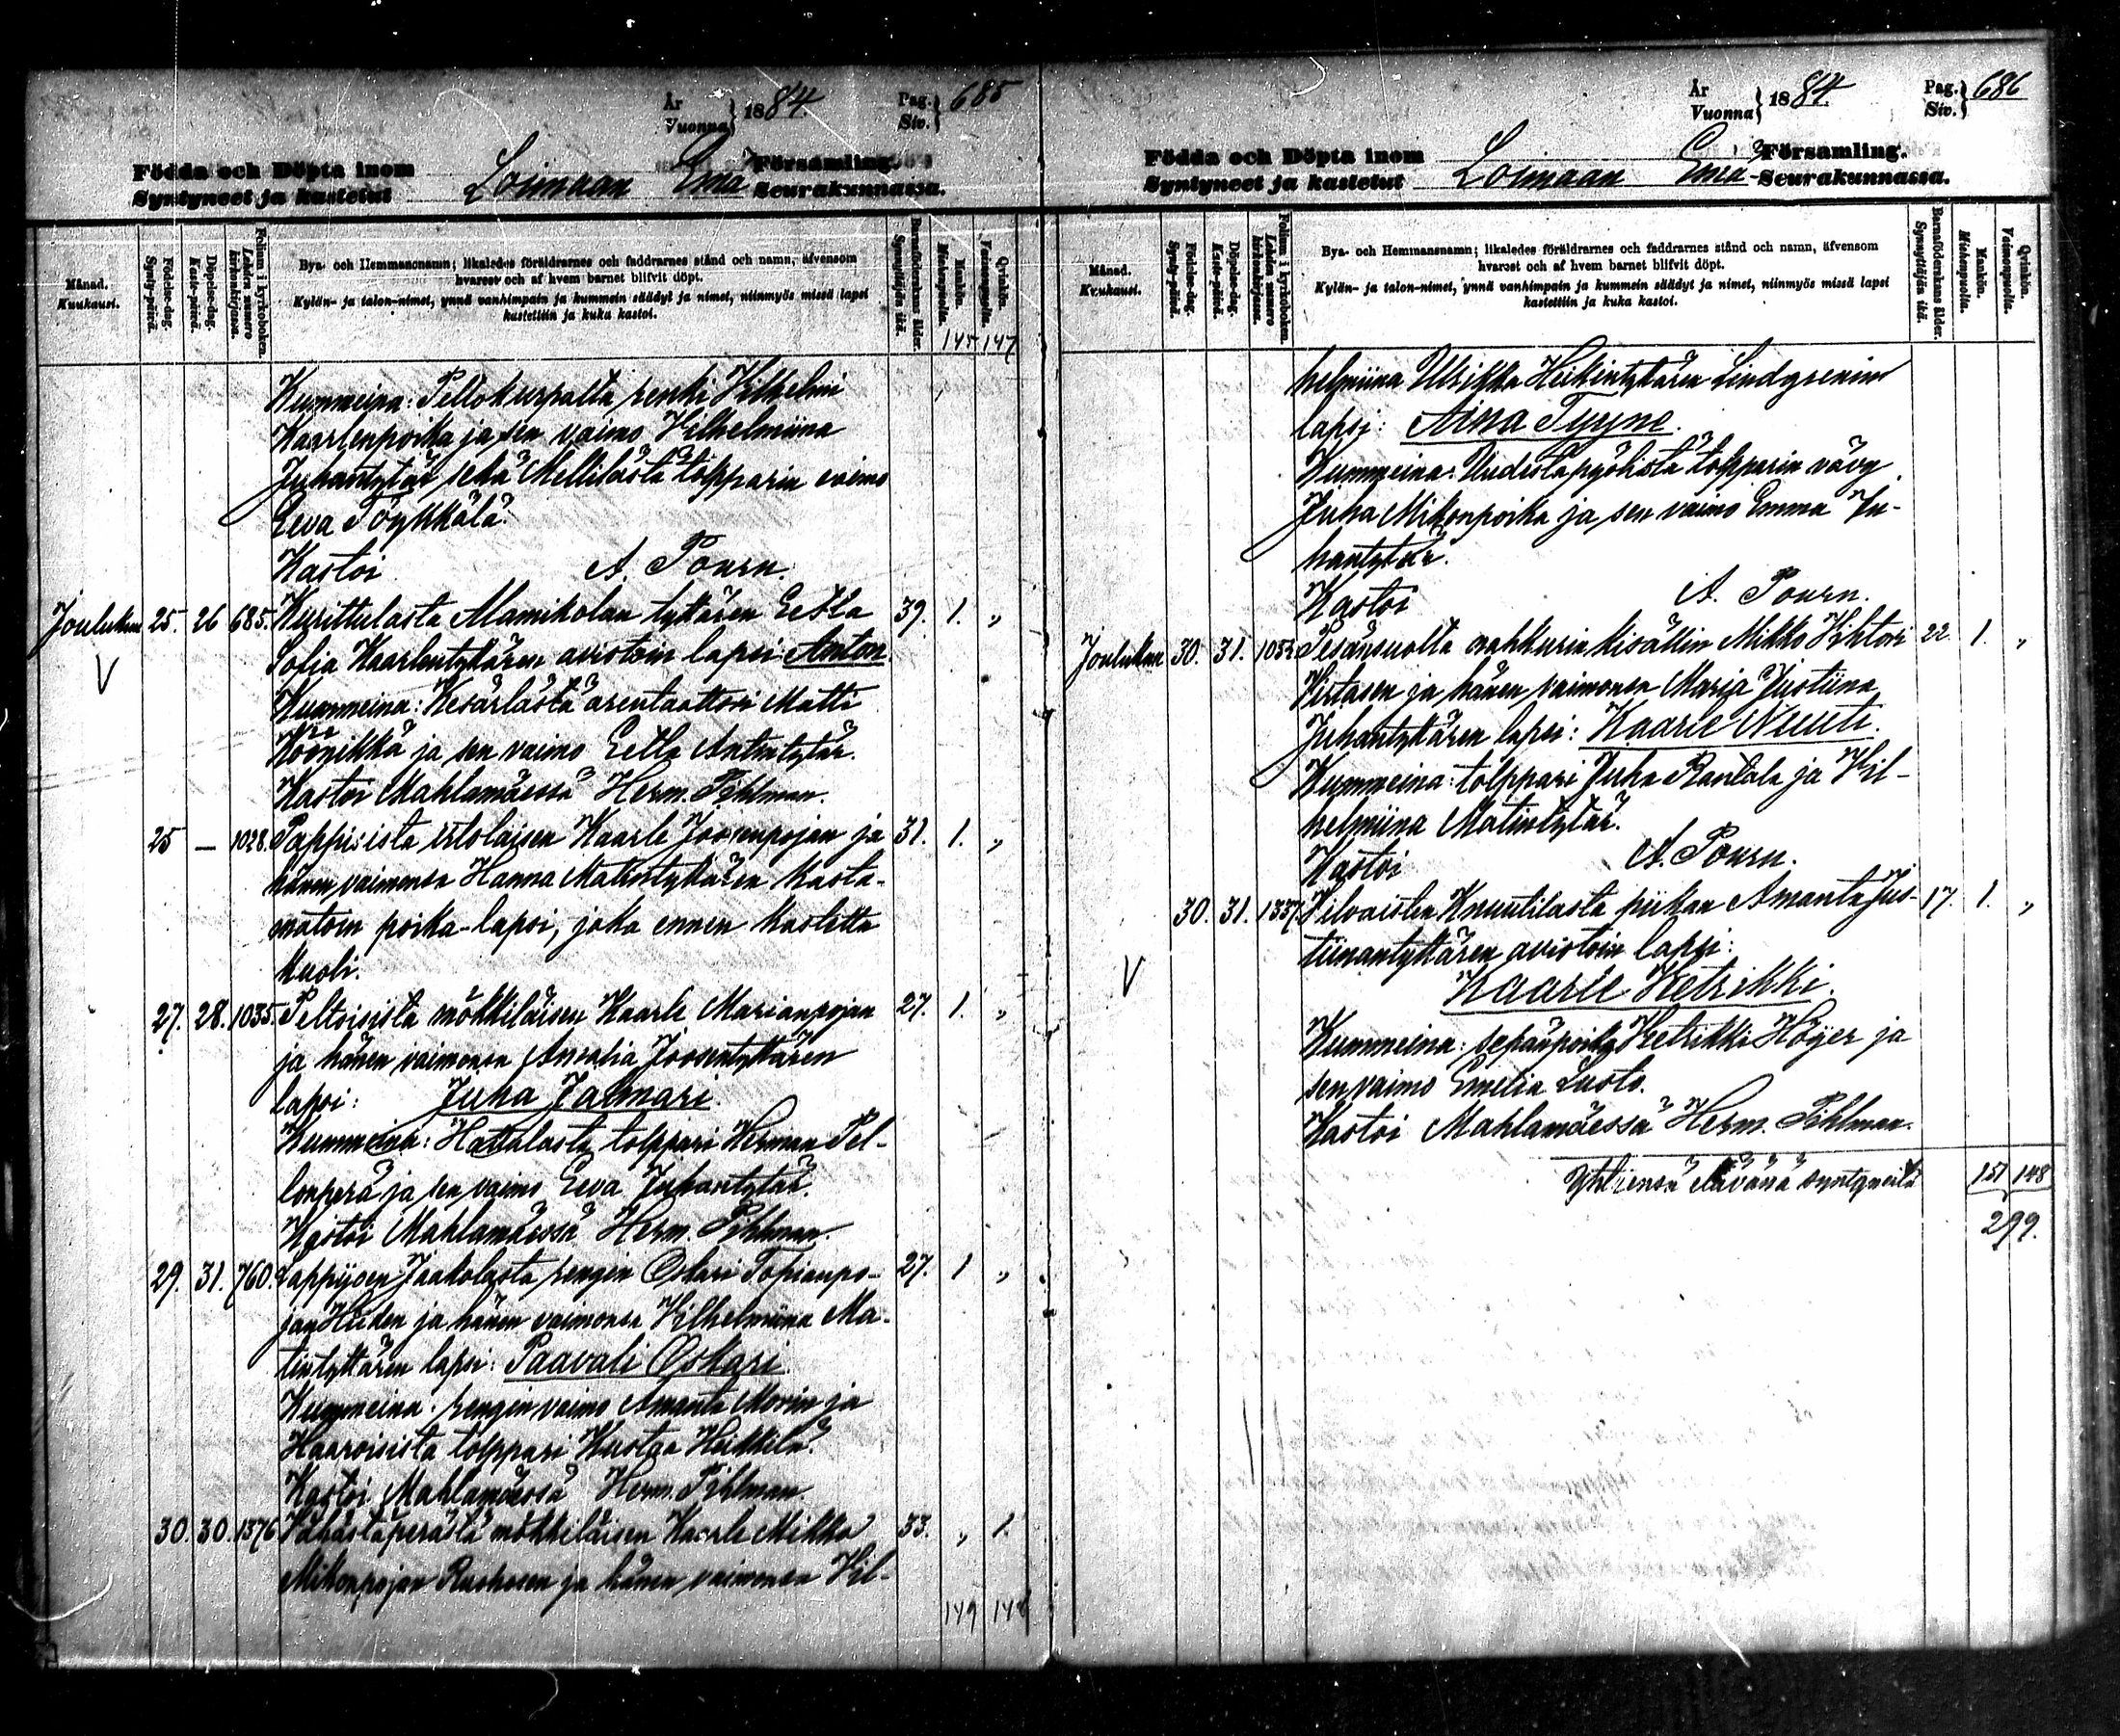 År
Vuonna } 1884. Pag. Siv. } 685
Födda och Döpta inom
Syntyneet ja kastetut Loimaan Emä Församling. Seurakunnassa.
Månad. Kuukausi.
Födelse-dag. Synty-päivä.
Döpelse-dag. Kaste-päivä.
Folium i kyrkoboken. Lehden numero kirkonkirjassa.
Bya- och Hemmansnamn; likaledes föräldrarnes och faddrarnes stånd och namn, äfvensom
hvarest och af hvem barnet blifvit döpt.
Kylän- ja talon-nimet, ynnä vanhimpain ja kummein säädyt ja nimet, niinmyös missä lapsi
kastettiin ja kuka kastoi.
Barnaföderskans ålder. Synnyttäjän ikä.
Mankön. Miehenpuolia.
Qvinkön. Vaimonpuolia.
145 147
Kummeina: Peltokurpalta renki Vilhelmi
Kaarlenpoika ja sen vaimo Vilhelmiina
Juhantytär sekä Mellilästä tolpparin vaimo
Eeva Töykkälä.
Kastoi A. Pourn.
Joulukuu 25. 26 685. Kurittulasta Alamikolan tyttären Eetla 39. 1. „
V Sofia Kaarlentyttären aviotoin lapsi Anton.
Kummeina: Kesärlästä arentaattori Matti
ja sen vaimo Eetla Antintytär.
Kastoi Mahlamäessä Herm. Pihlman.
25 — 1028. Pappisista itsolaisen Kaarle Joosenpojan ja 31. 1. „
hänen vaimonsa Hanna Matintyttären kasta-
matoin poika-lapsi, joka ennen kastetta
kuoli.
27. 28. 1035. Peltoisista mökkiläisen Kaarle Marianpojan 27. 1. „
ja hänen vaimonsa Amalia Joosentyttären
lapsi: Juha Jalmari.
Kummeina: Hattalasta tolppari Herman Pel-
lonperä ja sen vaimo Eeva Juhantytär.
Kastoi Mahlamäessä Herm. Pihlman.
29. 31. 760. Lappijoen Jaakolasta rengin Oskari Topianpo- 27. 1 „
jan Hiiden ja hänen vaimonsa Vilhelmiina Ma-
tintyttären lapsi: Paavali Oskari
Kummeina: rengin vaimo Amanta Morin ja
Haaroisista tolppari Kustaa Heikkilä.
Kastoi Mahlamäessä Herm. Pihlman.
30. 30. 1376 Vähästäperästä mökkiläisen Kaarle Mikko 33. „ 1.
Mikonpojan Ruohosen ja hänen vaimonsa Vil-
149 148
År
Vuonna } 1884. Pag. Siv. } 686
Födda och Döpta inom
Syntyneet ja kastetut Loimaan Emä Församling. Seurakunnassa.
Månad. Kuukausi.
Födelse-dag. Synty-päivä.
Döpelse-dag. Kaste-päivä.
Folium i kyrkoboken. Lehden numero kirkonkirjassa.
Bya- och Hemmansnamn; likaledes föräldrarnes och faddrarnes stånd och namn, äfvensom
hvarest och af hvem barnet blifvit döpt.
Kylän- ja talon-nimet, ynnä vanhimpain ja kummein säädyt ja nimet, niinmyös missä lapsi
kastettiin ja kuka kastoi.
Barnaföderskans ålder. Synnyttäjän ikä.
Mankön. Miehenpuolia.
Qvinkön. Vaimonpuolia.
helmiina Ulrikka Heikintyttären Lindgrenin
lapsi: Aina Tyyne.
Kummeina: tolpparin vävy
Juha Mikonpoika ja sen vaimo Emma Ju-
hantytär.
Kastoi A. Pourn.
Joulukuu 30. 31. Pesänsuolta nahkurin kisällin Mikko Vihtori 22 1. „
Virtasen ja hänen vaimonsa Maria Justiina
Juhantyttären lapsi: Kaarle Nuuti.
Kummeina: tolppari Juha Rantala ja Vil-
helmiina Matintytär.
Kastoi A. Pourn.
30. 31. 1337. Vilvaisten Knuutilasta piikan Amanta Jus- 17. 1. „
V tiinantyttären aviotoin lapsi:
Kaarle Ketrikki.
Kummeina: sepänpoika Ketrikki Höijer ja
sen vaimo Emelia Luoto.
Kastoi Mahlamäessä Herm. Pihlman.
Yhteensä elävänä syntyneitä 151 148
299.